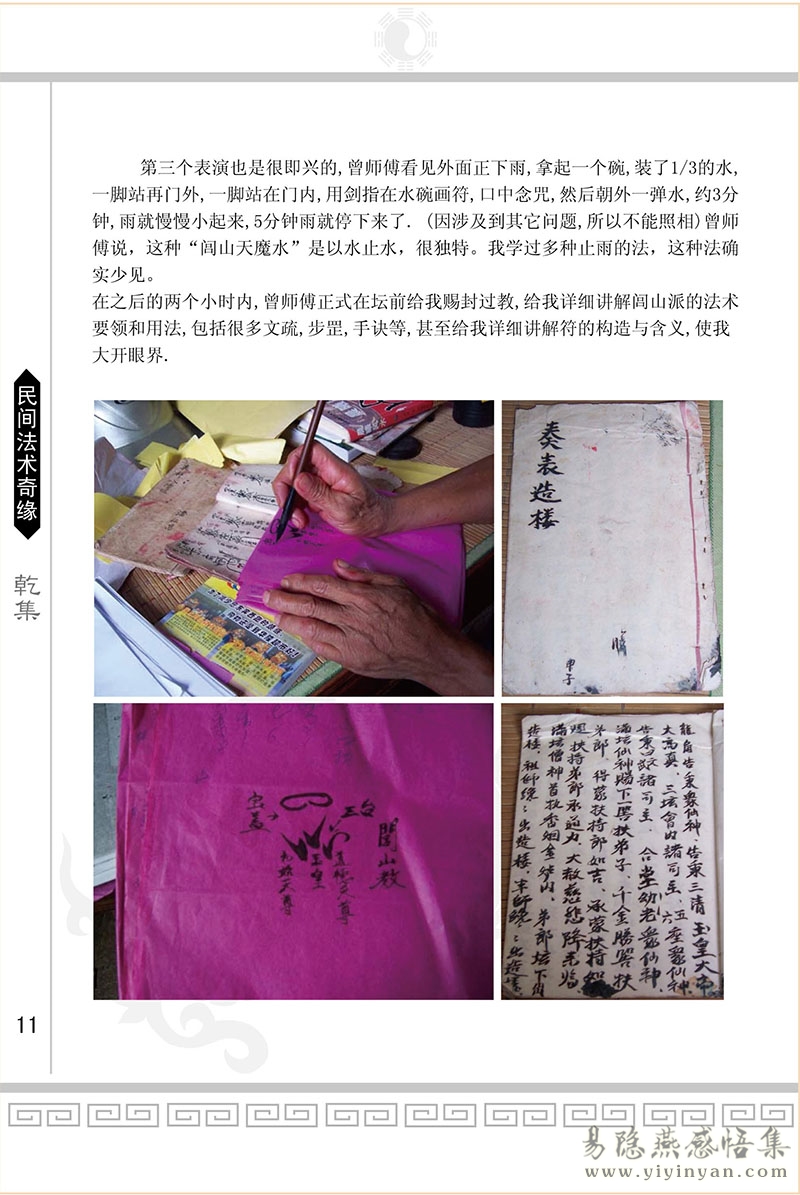 第三个表演也是很即兴的,曾师傅看见外面正下雨,拿起一个碗,装了1/3的水,
一脚站再门外,一脚站在门内,用剑指在水碗画符,口中念咒,然后朝外一弹水,约3分
钟,雨就慢慢小起来,5分钟雨就停下来了. (因涉及到其它问题,所以不能照相)曾师
傅说，这种“闾山天魔水”是以水止水，很独特。我学过多种止雨的法，这种法确
实少见。
在之后的两个小时内,曾师傅正式在坛前给我赐封过教,给我详细讲解闾山派的法术
要领和用法,包括很多文疏,步罡,手诀等,甚至给我详细讲解符的构造与含义,使我
大开眼界.
民间法术奇缘
乾集
奏表造楼
甲子
閭山教
三台
玉皇
大高真、三坛會内諸司主、五座眾仙神
滿坛仙神賜下一筶扶弟子、千金勝筶扶
弟郎、得蒙扶持郎如吉、承蒙扶持如
11
易隐燕感悟集
www.yiyinyan.com